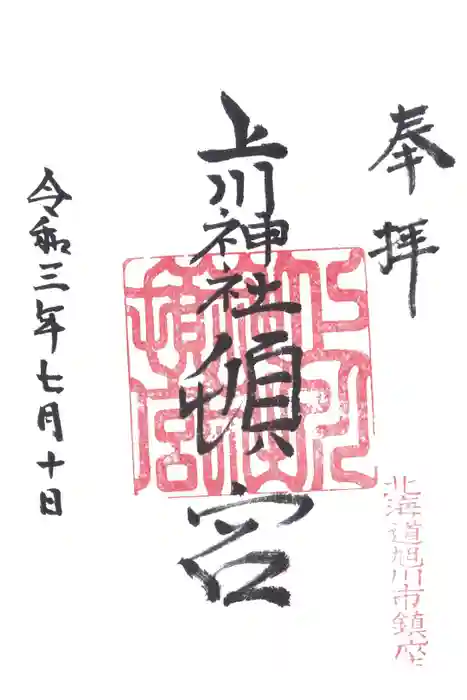 奉拝
北海道旭川市鎮座
上川神社頓宮
上川神社頓宮
令和三年七月十日